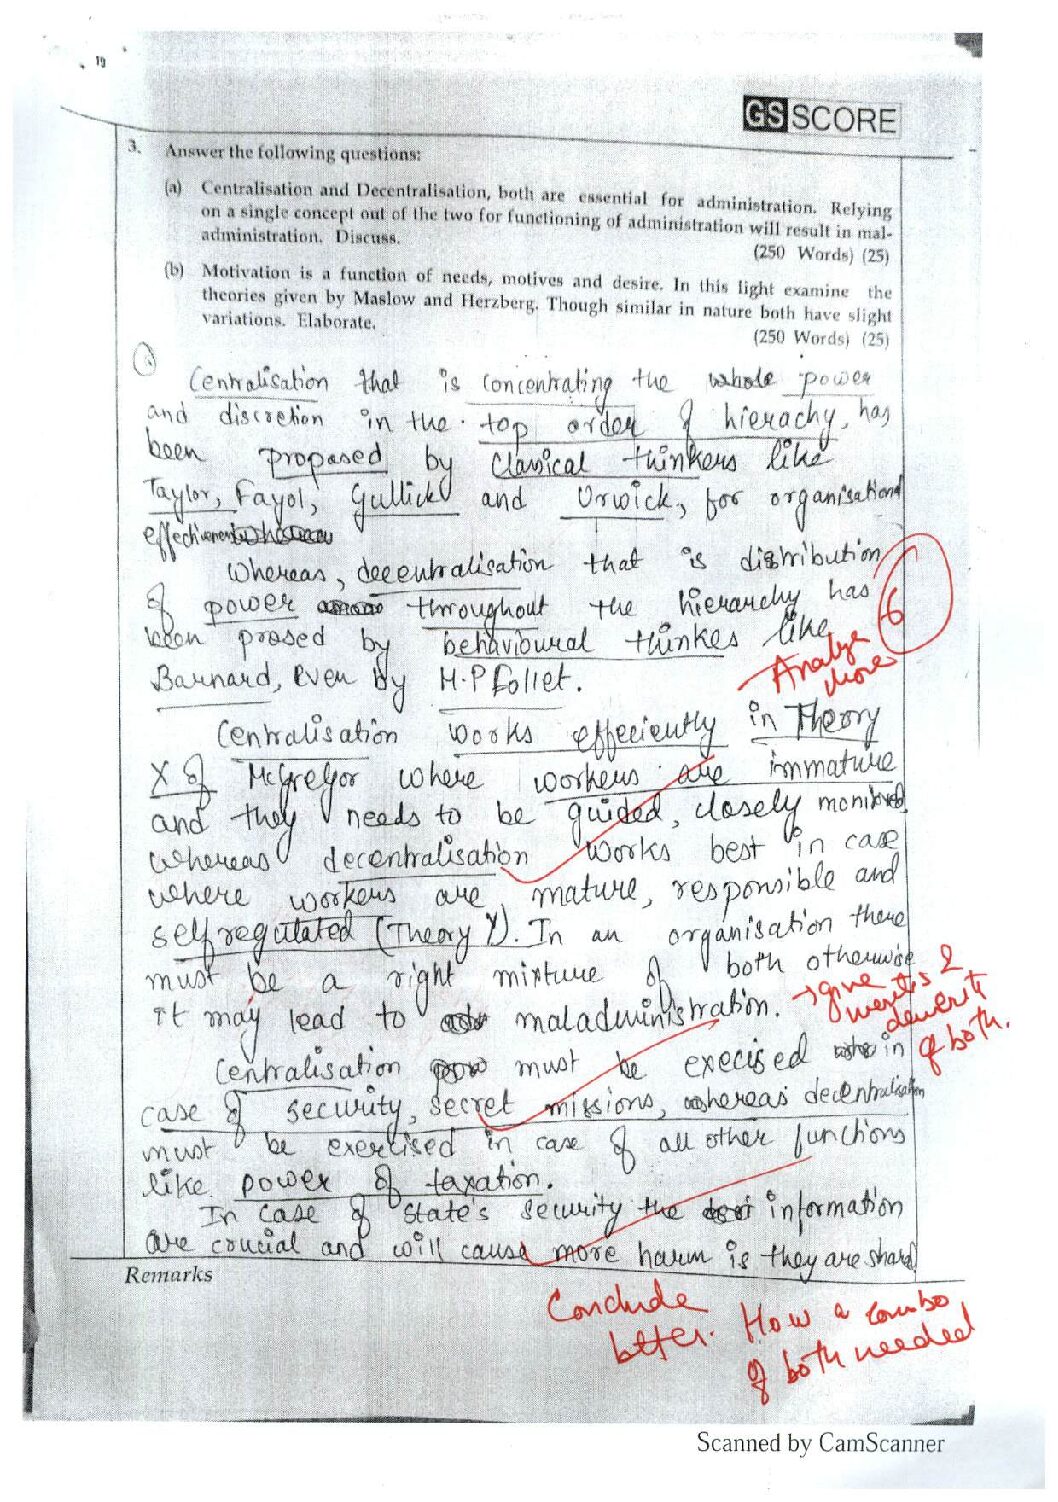 19
GS SCORE
3. Answer the following questions:
(a) Centralisation and Decentralisation, both are essential for administration. Relying
on a single concept out of the two for functioning of administration will result in mal-
administration. Discuss.
(250 Words) (25)
(b) Motivation is a function of needs, motives and desire. In this light examine the
theories given by Maslow and Herzberg. Though similar in nature both have slight
variations. Elaborate.
(250 Words) (25)
a
Centralisation that is concentrating the whole power
and discretion in the top order of hierachy, has
been propased by classical thinkers like
Taylor, Fayol, Gullick and Urwick, for organisational
effectiveness
Whereas, decentralisation that is distribution
of power throughout the hierarchy has
been prosed by behavioural thinkes like
Barnard, even by M.P Follet.
6
Analyze
more
Centralisation works effeciently in Theory
X of McGregor where workers are immature
and they needs to be guided, closely monitored
whereas decentralisation works best in case
where workers are mature, responsible and
self regulated (Theory Y). In an organisation there
must be a right mixture of both otherwise
it may lead to maladministration.
→ give
merits &
demerits
of both.
Centralisation must be execised in
case of security, secret missions, whereas decentralisation
must be exercised in case of all other functions
like power of taxation.
In case of state's security the information
are crucial and will cause more harm is they are shared
Remarks
Conclude
better. How a combo
of both needed
Scanned by CamScanner